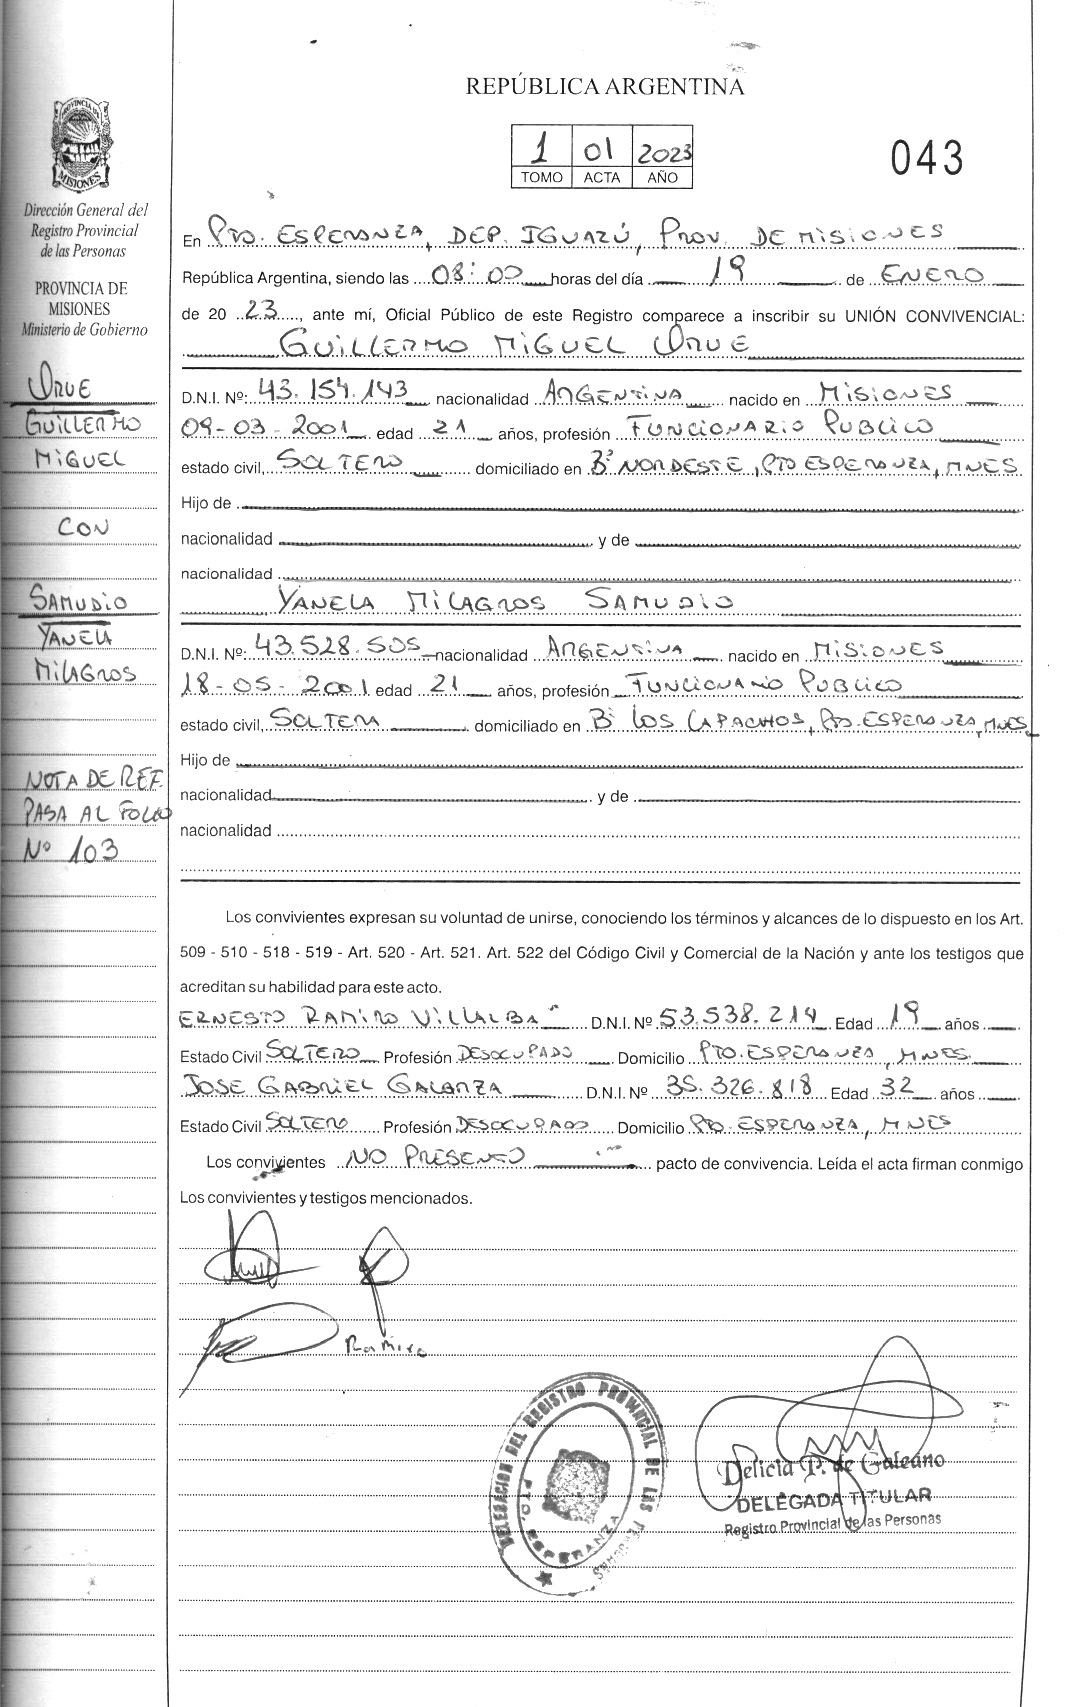 REPÚBLICA ARGENTINA
1 01 2023
TOMO ACTA AÑO
043
PROVINCIA DE MISIONES
Dirección General del
Registro Provincial
de las Personas
PROVINCIA DE
MISIONES
Ministerio de Gobierno
ORUE
GUILLERMO
MIGUEL
CON
SAMUDIO
YANELA
MILAGROS
NOTA DE REF.
PASA AL FOLIO
Nº 103
En PTO. ESPERANZA, DEP. IGUAZÚ, PROV. DE MISIONES
República Argentina, siendo las 08:00 horas del día 19 de ENERO
de 20 23, ante mí, Oficial Público de este Registro comparece a inscribir su UNIÓN CONVIVENCIAL:
GUILLERMO MIGUEL ORUE
D.N.I. Nº: 43.154.143 nacionalidad ARGENTINA nacido en MISIONES
09-03-2001 edad 21 años, profesión FUNCIONARIO PUBLICO
estado civil, SOLTERO domiciliado en Bº NORDESTE, PTO ESPERANZA, MNES
Hijo de
nacionalidad y de
nacionalidad
YANELA MILAGROS SAMUDIO
D.N.I. Nº: 43.528.505 nacionalidad ARGENTINA nacido en MISIONES
18-05-2001 edad 21 años, profesión FUNCIONARIO PUBLICO
estado civil, SOLTERA domiciliado en Bº LOS LAPACHOS, PTO. ESPERANZA, MNES
Hijo de
nacionalidad y de
nacionalidad
Los convivientes expresan su voluntad de unirse, conociendo los términos y alcances de lo dispuesto en los Art.
509 - 510 - 518 - 519 - Art. 520 - Art. 521. Art. 522 del Código Civil y Comercial de la Nación y ante los testigos que
acreditan su habilidad para este acto.
ERNESTO RAMIRO VILLALBA D.N.I. Nº 53.538.214 Edad 19 años
Estado Civil SOLTERO Profesión DESOCUPADO Domicilio PTO. ESPERANZA, MNES
JOSE GABRIEL GALARZA D.N.I. Nº 35.326.818 Edad 32 años
Estado Civil SOLTERO Profesión DESOCUPADO Domicilio PTO. ESPERANZA, MNES
Los convivientes NO PRESENTO pacto de convivencia. Leída el acta firman conmigo
Los convivientes y testigos mencionados.
Ramiro
DELEGACION DEL REGISTRO PROVINCIAL DE LAS PERSONAS
PTO. ESPERANZA
Delicia P. de Galeano
DELEGADA TITULAR
Registro Provincial de las Personas